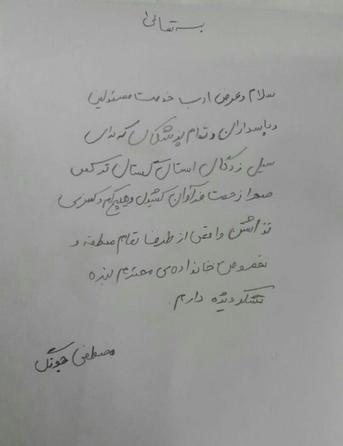 بسمه تعالی
سلام و عرض ادب خدمت مسئولین
و پاسداران و تمام پزشکان که برای
سیل زدگان استان گلستان
زحمت فراوان کشیدن و هیچ کم و کسری
نذاشتن واقعن از طرف تمام منطقه و
بخصوص خانواده‌ی محترم بنده
تشکر ویژه دارم.
مصطفی